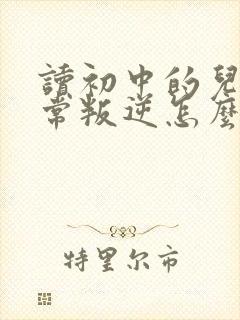 讀初中的兒
常叛逆怎麼
特里尔市